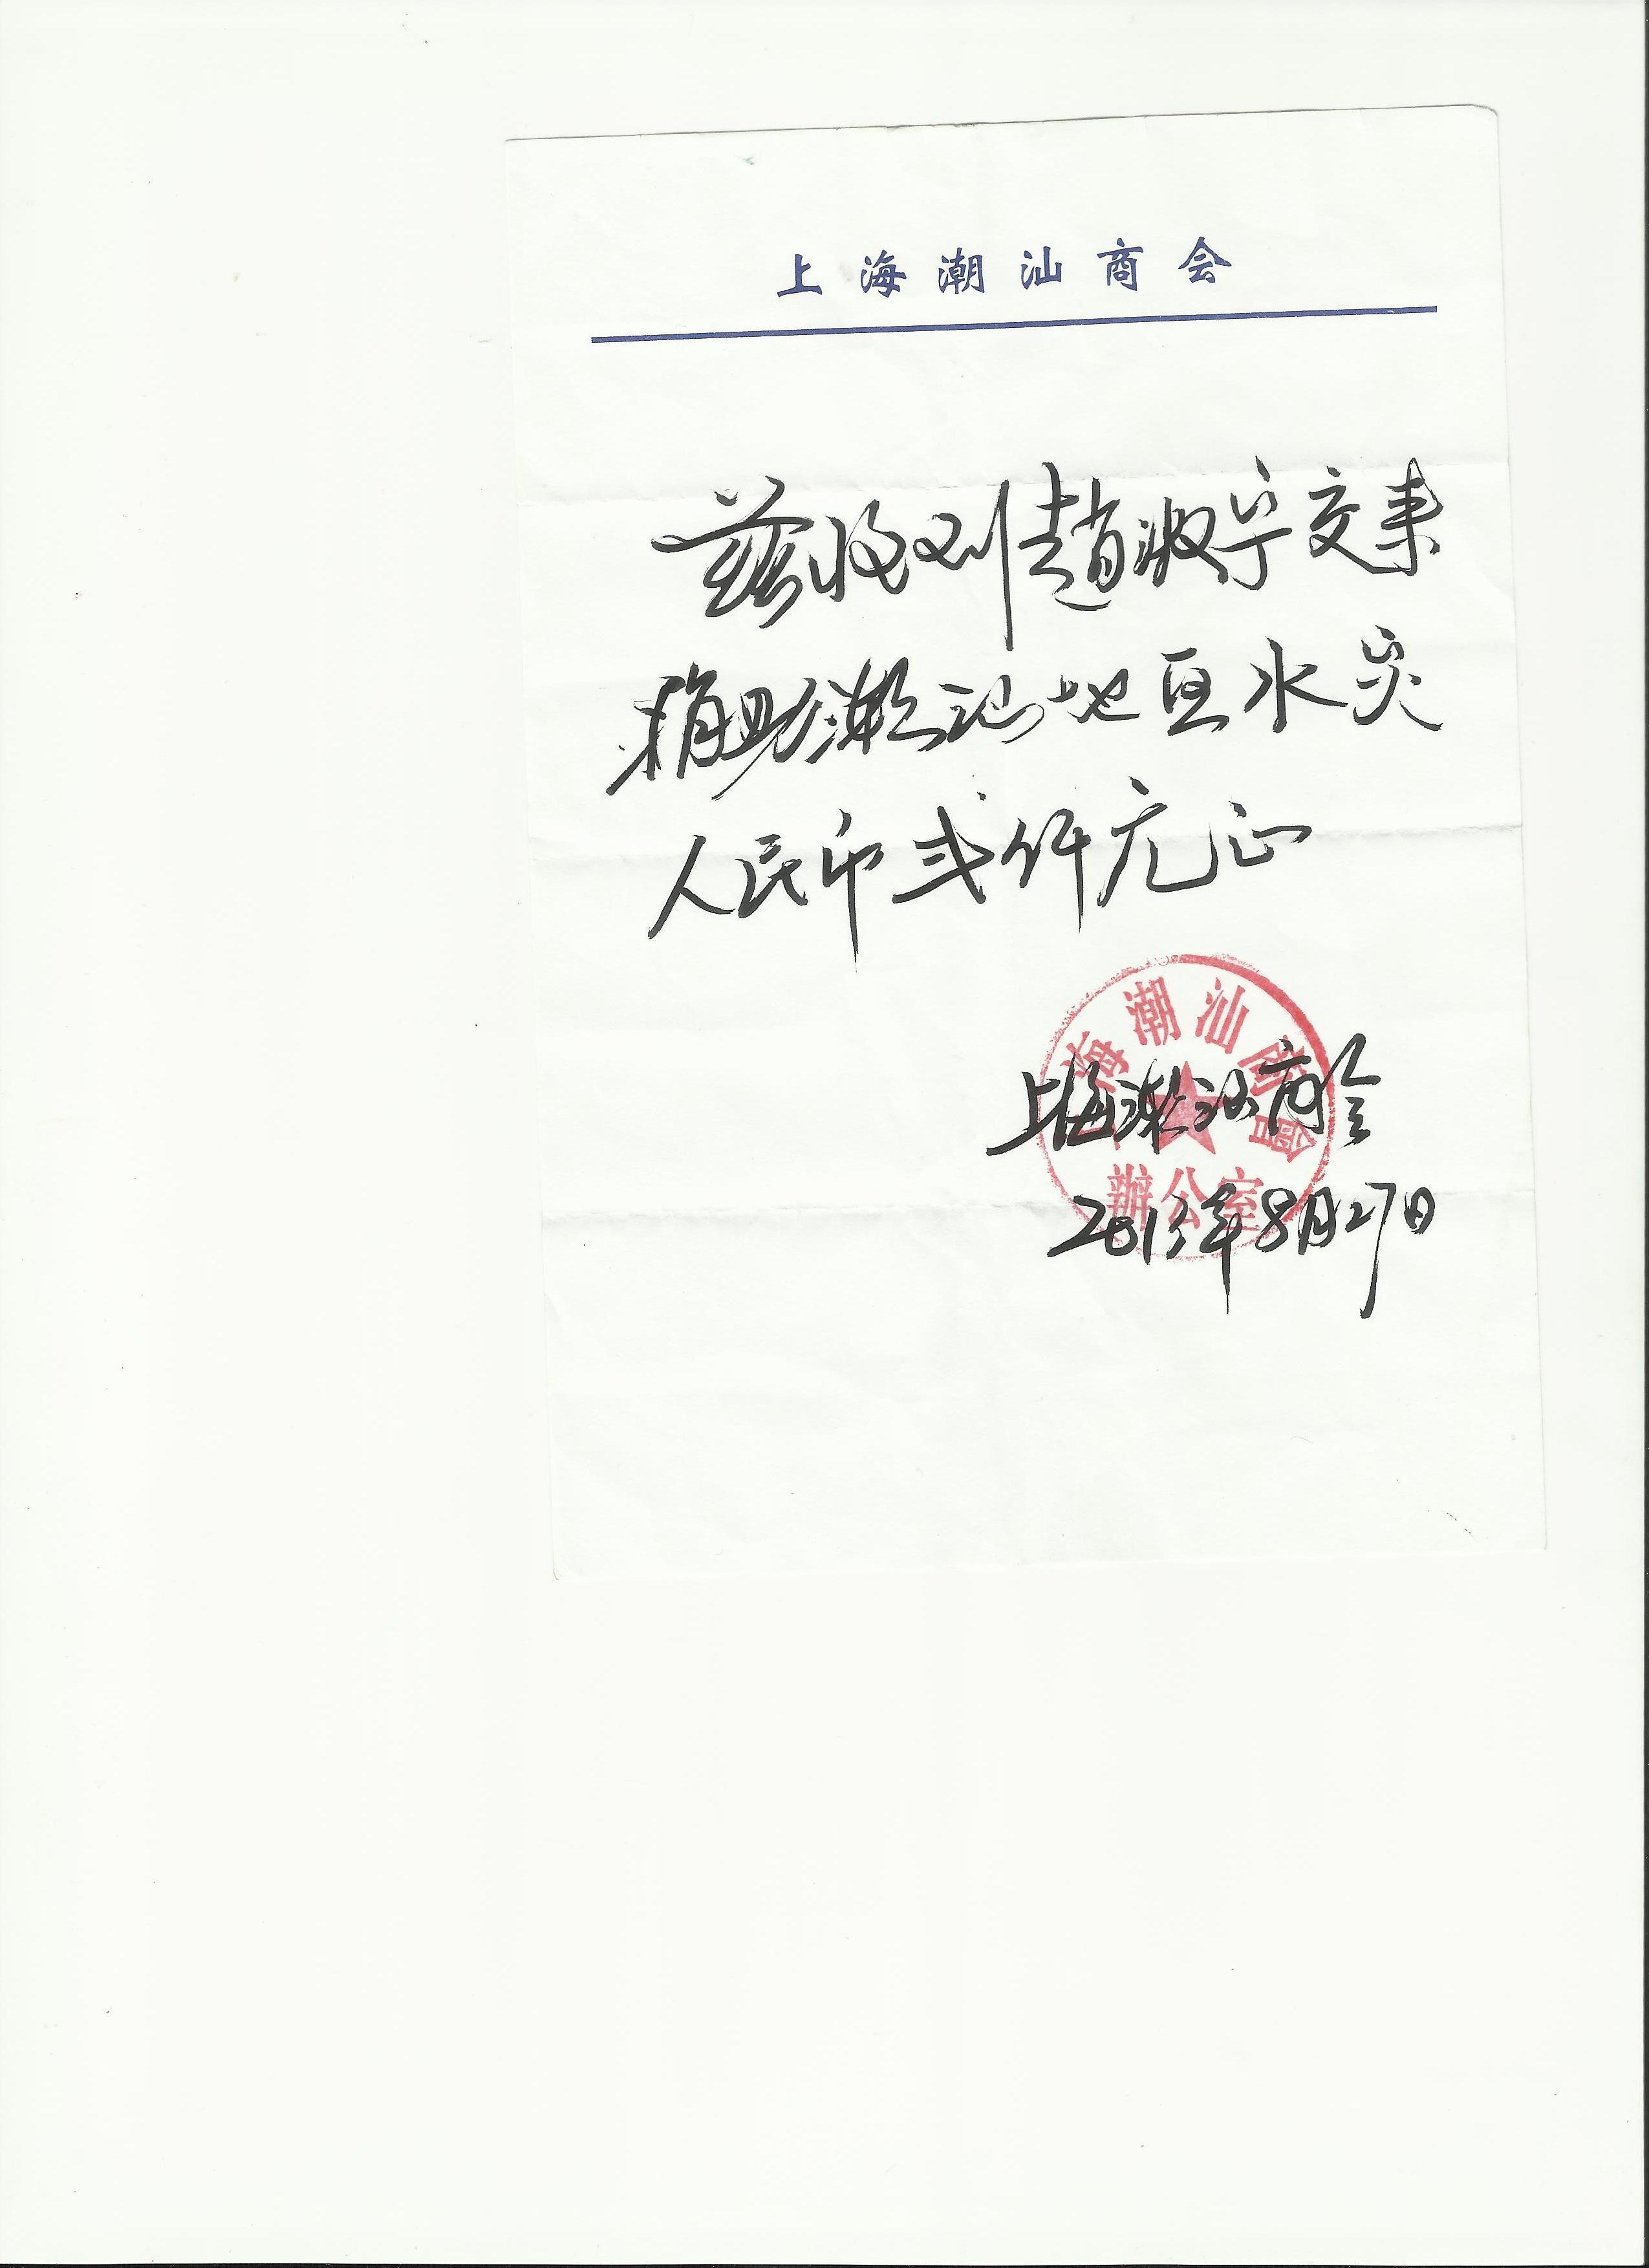 上海潮汕商会
兹收到赵淑宁交来
捐助潮汕地区水灾
人民币贰仟元正
上海潮汕商会
2013年8月27日
海潮汕商會
辦公室